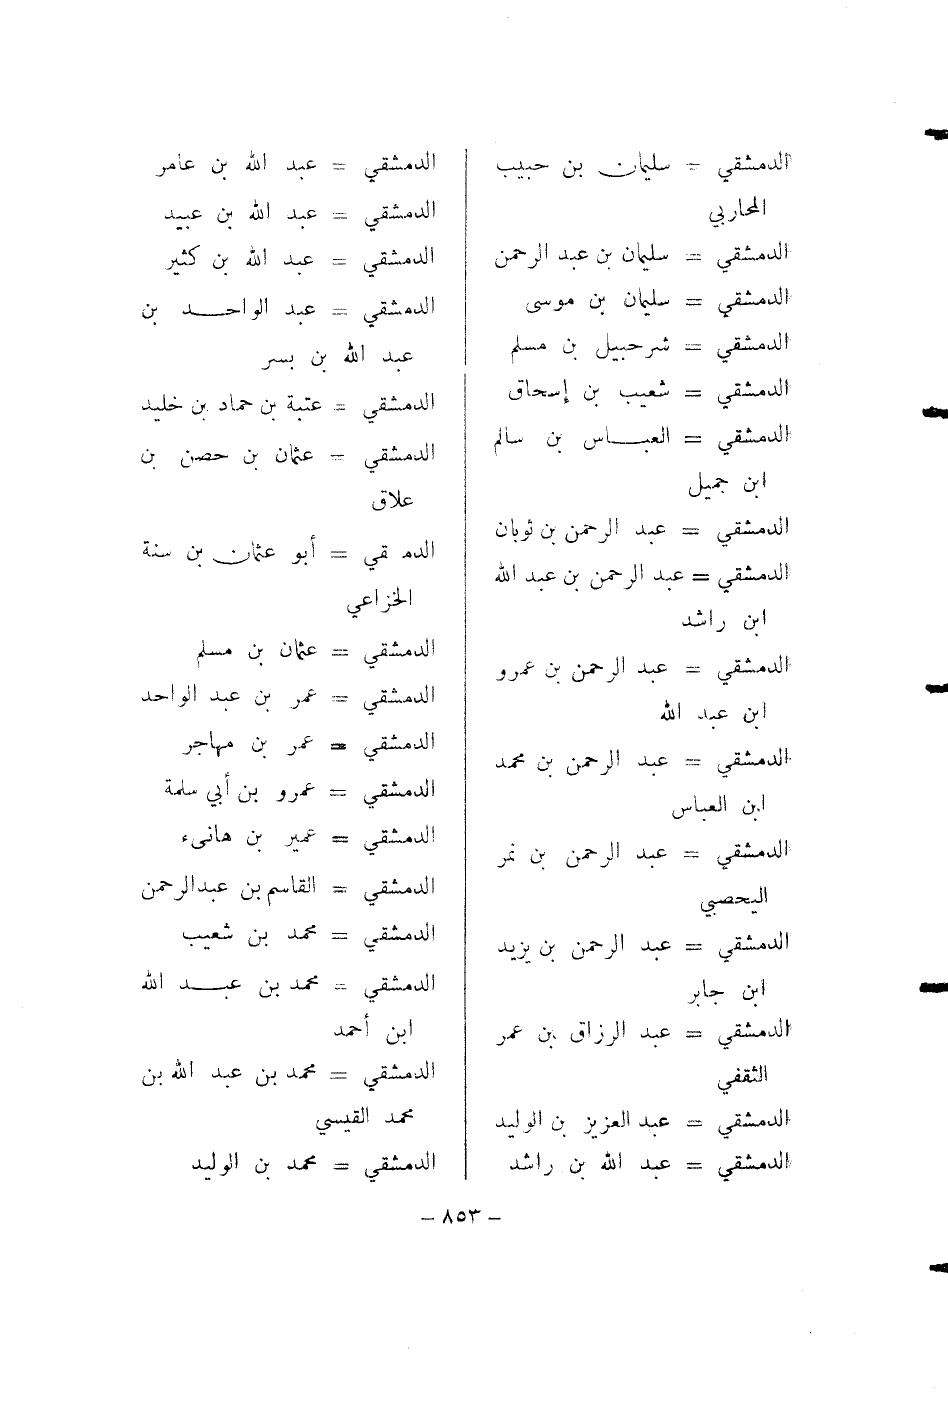 الدمشقي = سليمان بن حبيب
المحاربي
الدمشقي = سليمان بن عبد الرحمن
الدمشقي = سليمان بن موسى
الدمشقي = شرحبيل بن مسلم
الدمشقي = شعيب بن إسحاق
الدمشقي = العباس بن سالم
ابن جميل
الدمشقي = عبد الرحمن بن ثوبان
الدمشقي = عبد الرحمن بن عبد الله
ابن راشد
الدمشقي = عبد الرحمن بن عمرو
ابن عبد الله
الدمشقي = عبد الرحمن بن محمد
ابن العباس
الدمشقي = عبد الرحمن بن نمر
اليحصبي
الدمشقي = عبد الرحمن بن يزيد
ابن جابر
الدمشقي = عبد الرزاق بن عمر
الثقفي
الدمشقي = عبد العزيز بن الوليد
الدمشقي = عبد الله بن راشد
الدمشقي = عبد الله بن عامر
الدمشقي = عبد الله بن عبيد
الدمشقي = عبد الله بن كثير
الدمشقي = عبد الواحد بن
عبد الله بن بسر
الدمشقي = عتبة بن حماد بن خليد
الدمشقي = عثمان بن حصن بن
علاق
الدم قي = أبو عثمان بن سنة
الخزاعي
الدمشقي = عثمان بن مسلم
الدمشقي = عمر بن عبد الواحد
الدمشقي = عمر بن مهاجر
الدمشقي = عمرو بن أبي سلمة
الدمشقي = عمير بن هانىء
الدمشقي = القاسم بن عبدالرحمن
الدمشقي = محمد بن شعيب
الدمشقي = محمد بن عبد الله
ابن أحمد
الدمشقي = محمد بن عبد الله بن
محمد القيسي
الدمشقي = محمد بن الوليد
– ٨٥٣ –